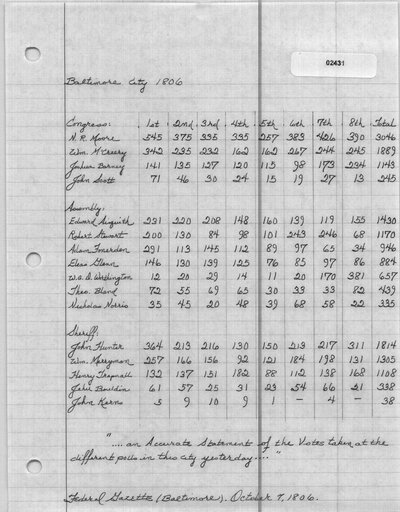 02431
Baltimore City 1806
Congress: 1st 2nd 3rd 4th 5th 6th 7th 8th Total
N. R. Moore 545 375 335 335 257 383 426 390 3046
Wm. McCreery 342 235 232 162 162 267 244 245 1889
Joshua Barney 141 135 127 120 115 98 173 234 1143
John Scott 71 46 30 24 15 19 27 13 245
Assembly:
Edward Aisquith 281 220 208 148 160 139 119 155 1430
Robert Steuart 200 130 84 98 101 243 246 68 1170
Adam Fonerden 291 113 145 112 89 97 65 34 946
Elias Glenn 146 130 139 125 76 85 97 86 884
W.A.D. Washington 12 20 29 14 11 20 170 381 657
Theo. Bland 72 55 69 65 30 33 33 82 439
Nicholas Norris 35 45 20 48 39 68 58 22 335
Sheriff:
John Hunter 364 213 216 130 150 213 217 311 1814
Wm. Merryman 257 166 156 92 121 184 198 131 1305
Henry Trapnall 132 137 151 182 88 112 138 168 1108
Jehu Bouldin 61 57 25 31 23 54 66 21 338
John Karns 5 9 10 9 1 — 4 — 38
".... an Accurate Statement of the Votes taken at the
different polls in this city yesterday...."
Federal Gazette (Baltimore). October 7, 1806.